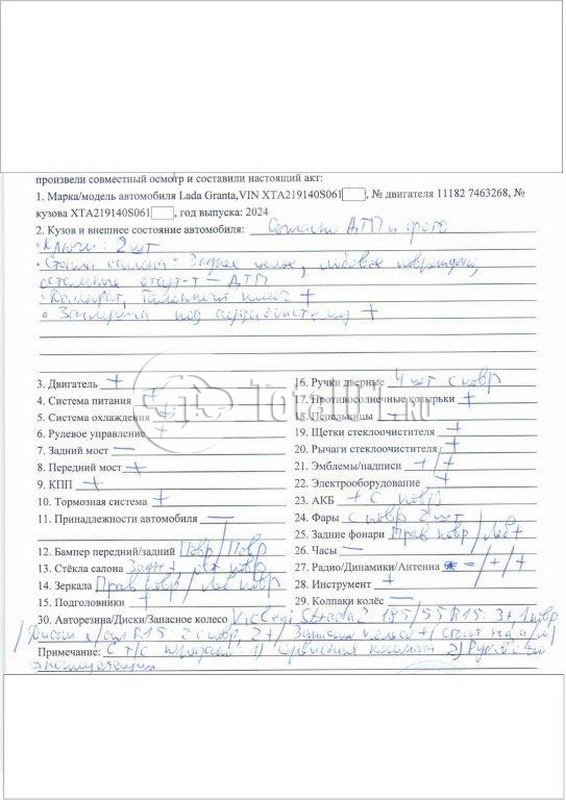 произвели совместный осмотр и составили настоящий акт:
1. Марка/модель автомобиля Lada Granta,VIN XTA219140S061, № двигателя 11182 7463268, №
кузова XTA219140S061, год выпуска: 2024
2. Кузов и внешнее состояние автомобиля: ДТП и фото
• Ключи: 2 шт
• Стекла салона - Заднее целое, лобовое повреждено,
остальные отсут-т - ДТП
• Домкрат, Баллонный ключ +
• Заглушка под аудиосистему +
3. Двигатель +
4. Система питания +
5. Система охлаждения +
6. Рулевое управление +
7. Задний мост —
8. Передний мост +
9. КПП +
10. Тормозная система +
11. Принадлежности автомобиля —
12. Бампер передний/задний Повр / Повр
13. Стёкла салона Задн +
14. Зеркала Прав повр / Лев повр
15. Подголовники +
16. Ручки дверные 4 шт с повр
17. Противосолнечные козырьки +
18. Пепельницы —
19. Щетки стеклоочистителя +
20. Рычаги стеклоочистителя +
21. Эмблемы/надписи + / +
22. Электрооборудование +
23. АКБ + с повр
24. Фары с повр 2 шт
25. Задние фонари Прав повр / Лев +
26. Часы —
27. Радио/Динамики/Антенна - / + / +
28. Инструмент +
29. Колпаки колёс —
30. Авторезина/Диски/Запасное колесо Viatti Strada 2 185/55 R15. 3+, 1 повр
/ Диски R15: 2 с повр, 2+ / Запасное колесо + (стоит на а/м)
Примечание: С т/с передано: 1) Сервисная книжка 2) Руков-во
эксплуатации
TOTAL01.RU